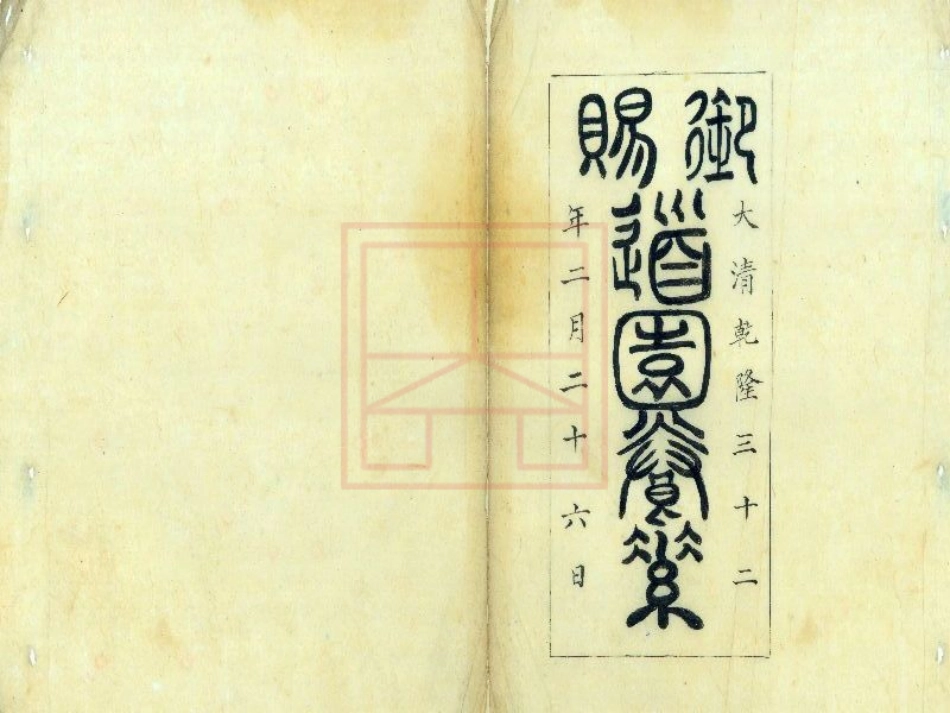 御賜
道園養素
大清乾隆三十二
年二月二十六日